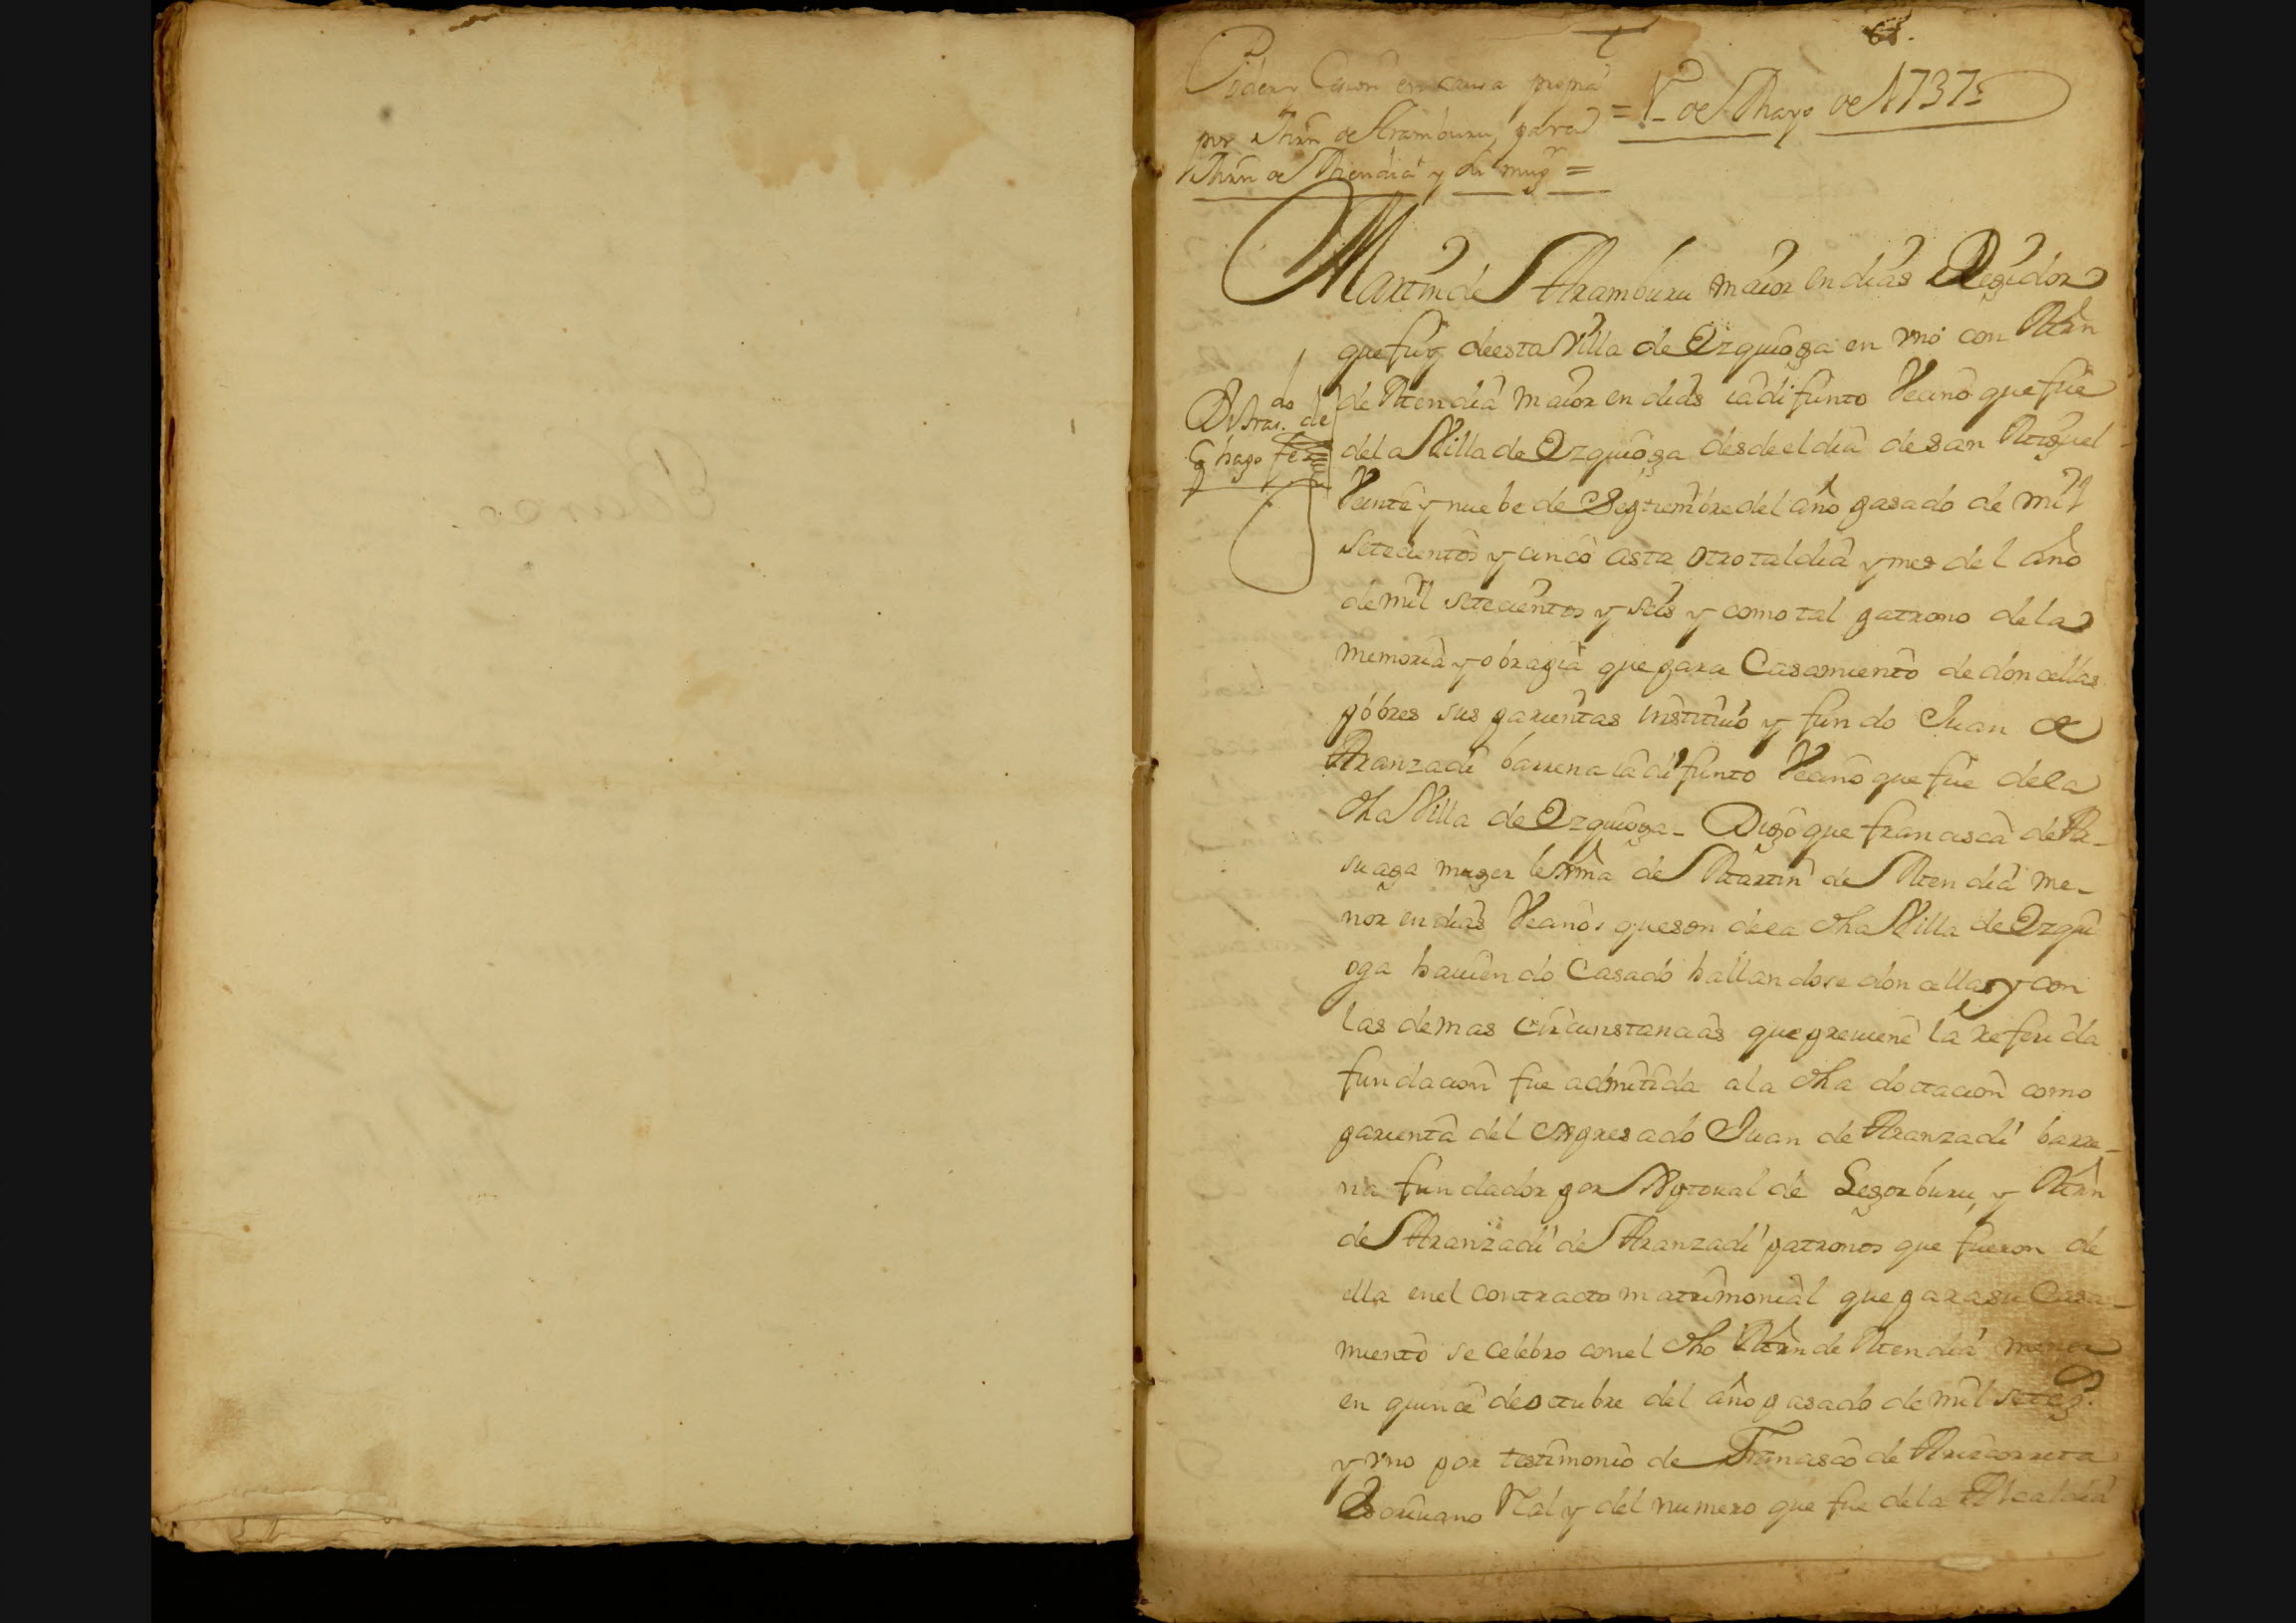 68.
Poder y Cesion en causa propia
por Mrn de Aramburu, para
Mrn de Mendia y su mugr =
= 1º de Mayo de 1737 =
Martin de Aramburu maior en dias Regidor
que fuy de esta Villa de Ezquioga en vno con Mrn
de Mendia maior en dias ia difunto Vecino que fue
de la Villa de Ezquioga desde el dia de san Miguel
Veinte y nuebe de Septiembre del año pasado de mil
setecientos y cinco asta otro tal dia y mes del año
de mil setecientos y seis y como tal patrono de la
memoria y obra pia que para Casamiento de doncellas
pobres sus parientas instituio y fundo Juan de
Aranzadi barrena ia difunto Vecino que fue de la
dha Villa de Ezquioga - Digo que francisca de A-
suaga muger lexma de Martin de Mendia me-
nor en dias Vecinos que son de la dha Villa de Ezqui
oga hauiendo Casado hallandose doncella y con
las demas circunstancias que preuiene la referida
fundacion fue admitida a la dha doctacion como
parienta del expresado Juan de Aranzadi barre-
na fundador por Xptoual de Legorburu, y Mrn
de Aranzadi de Aranzadi patronos que fueron de
ella en el contracto matrimonial que para su Casa-
miento se celebro con el dho Mrn de Mendia menor
en quince de octubre del año pasado de mil setez.
y vno por testimonio de Francisco de Aruicorreta
Escriuano Rl y del numero que fue de la Alcaldia
do
Sras. de
q hago fee